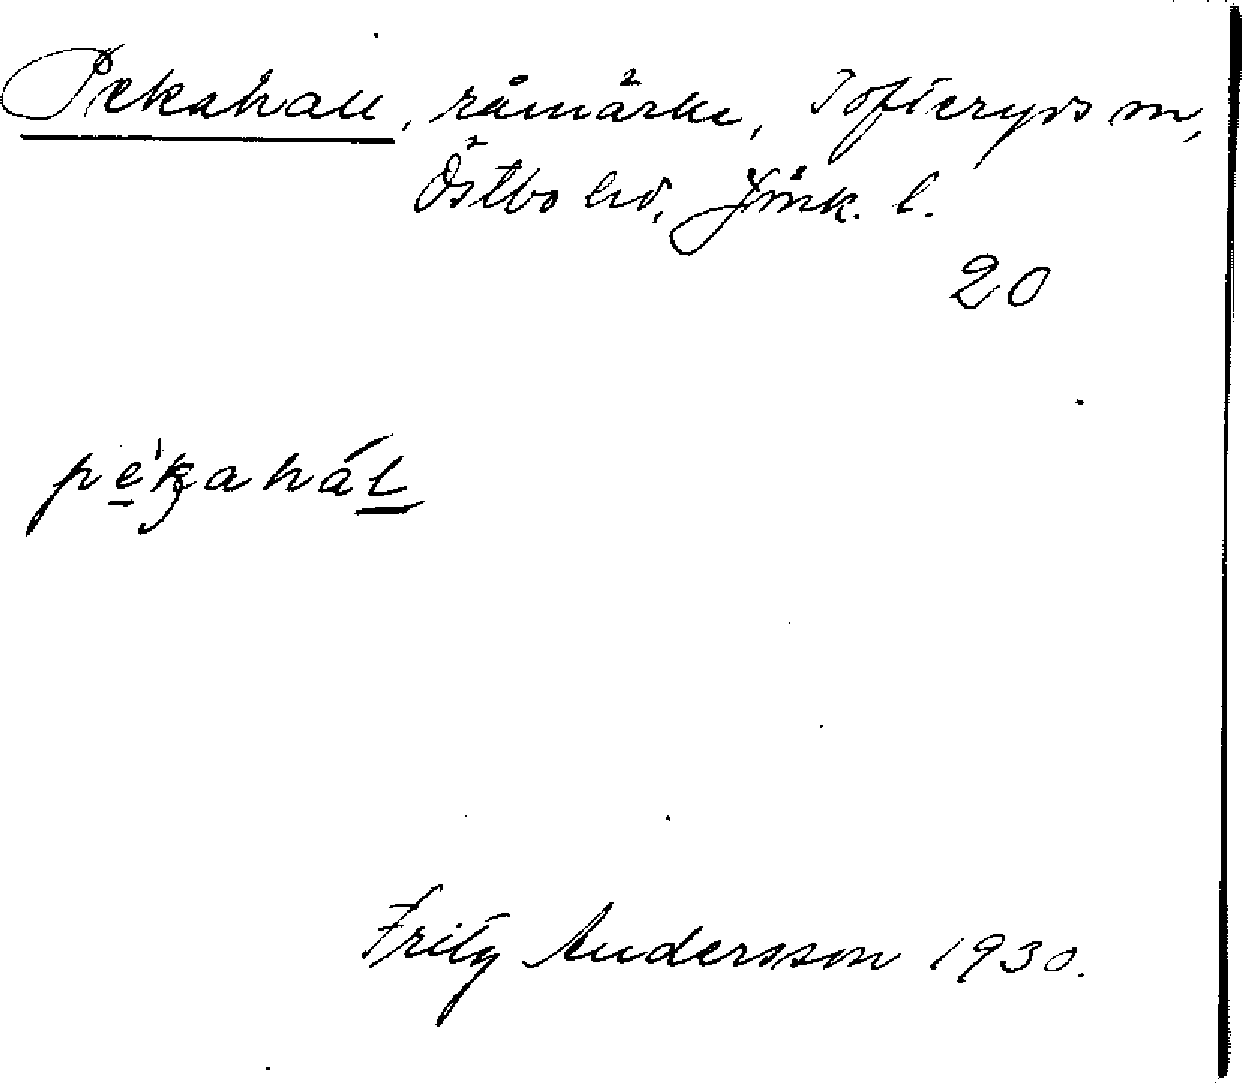 Pekahall, råmärke, Tofteryds sn,
Östbo hd, Jönk. l.
20
pékahál
Fritz Andersson 1930.